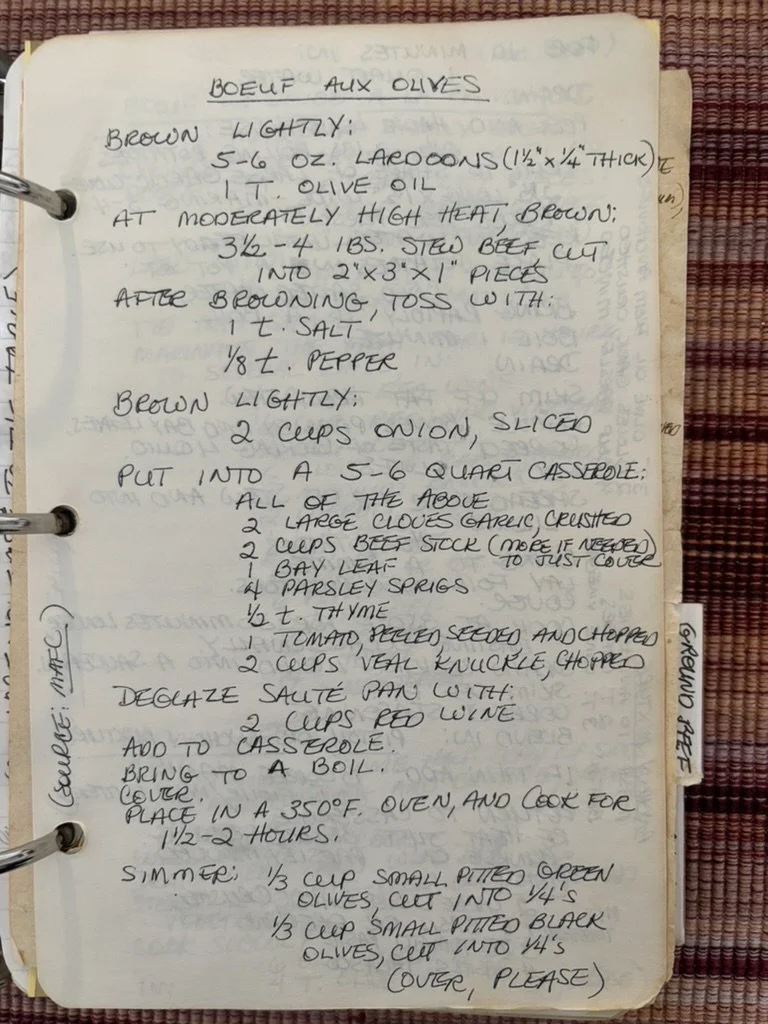 BOEUF AUX OLIVES
BROWN LIGHTLY:
5-6 OZ. LARDOONS (1½" x ¼" THICK)
1 T. OLIVE OIL
AT MODERATELY HIGH HEAT, BROWN:
3½ - 4 lBS. STEW BEEF, CUT
INTO 2" x 3" x 1" PIECES
AFTER BROWNING, TOSS WITH:
1 t. SALT
⅛ t. PEPPER
BROWN LIGHTLY:
2 CUPS ONION, SLICED
PUT INTO A 5-6 QUART CASSEROLE:
ALL OF THE ABOVE
2 LARGE CLOVES GARLIC, CRUSHED
2 CUPS BEEF STOCK (MORE IF NEEDED)
TO JUST COVER
1 BAY LEAF
4 PARSLEY SPRIGS
½ t. THYME
1 TOMATO, PEELED, SEEDED, AND CHOPPED
2 CUPS VEAL KNUCKLE, CHOPPED
DEGLAZE SAUTÉ PAN WITH:
2 CUPS RED WINE
ADD TO CASSEROLE.
BRING TO A BOIL.
COVER.
PLACE IN A 350°F. OVEN, AND COOK FOR
1½-2 HOURS.
SIMMER: ⅓ CUP SMALL PITTED GREEN
OLIVES, CUT INTO ¼'s
⅓ CUP SMALL PITTED BLACK
OLIVES, CUT INTO ¼'s
(OVER, PLEASE)
(SOURCE: MAFC)
GROUND BEEF